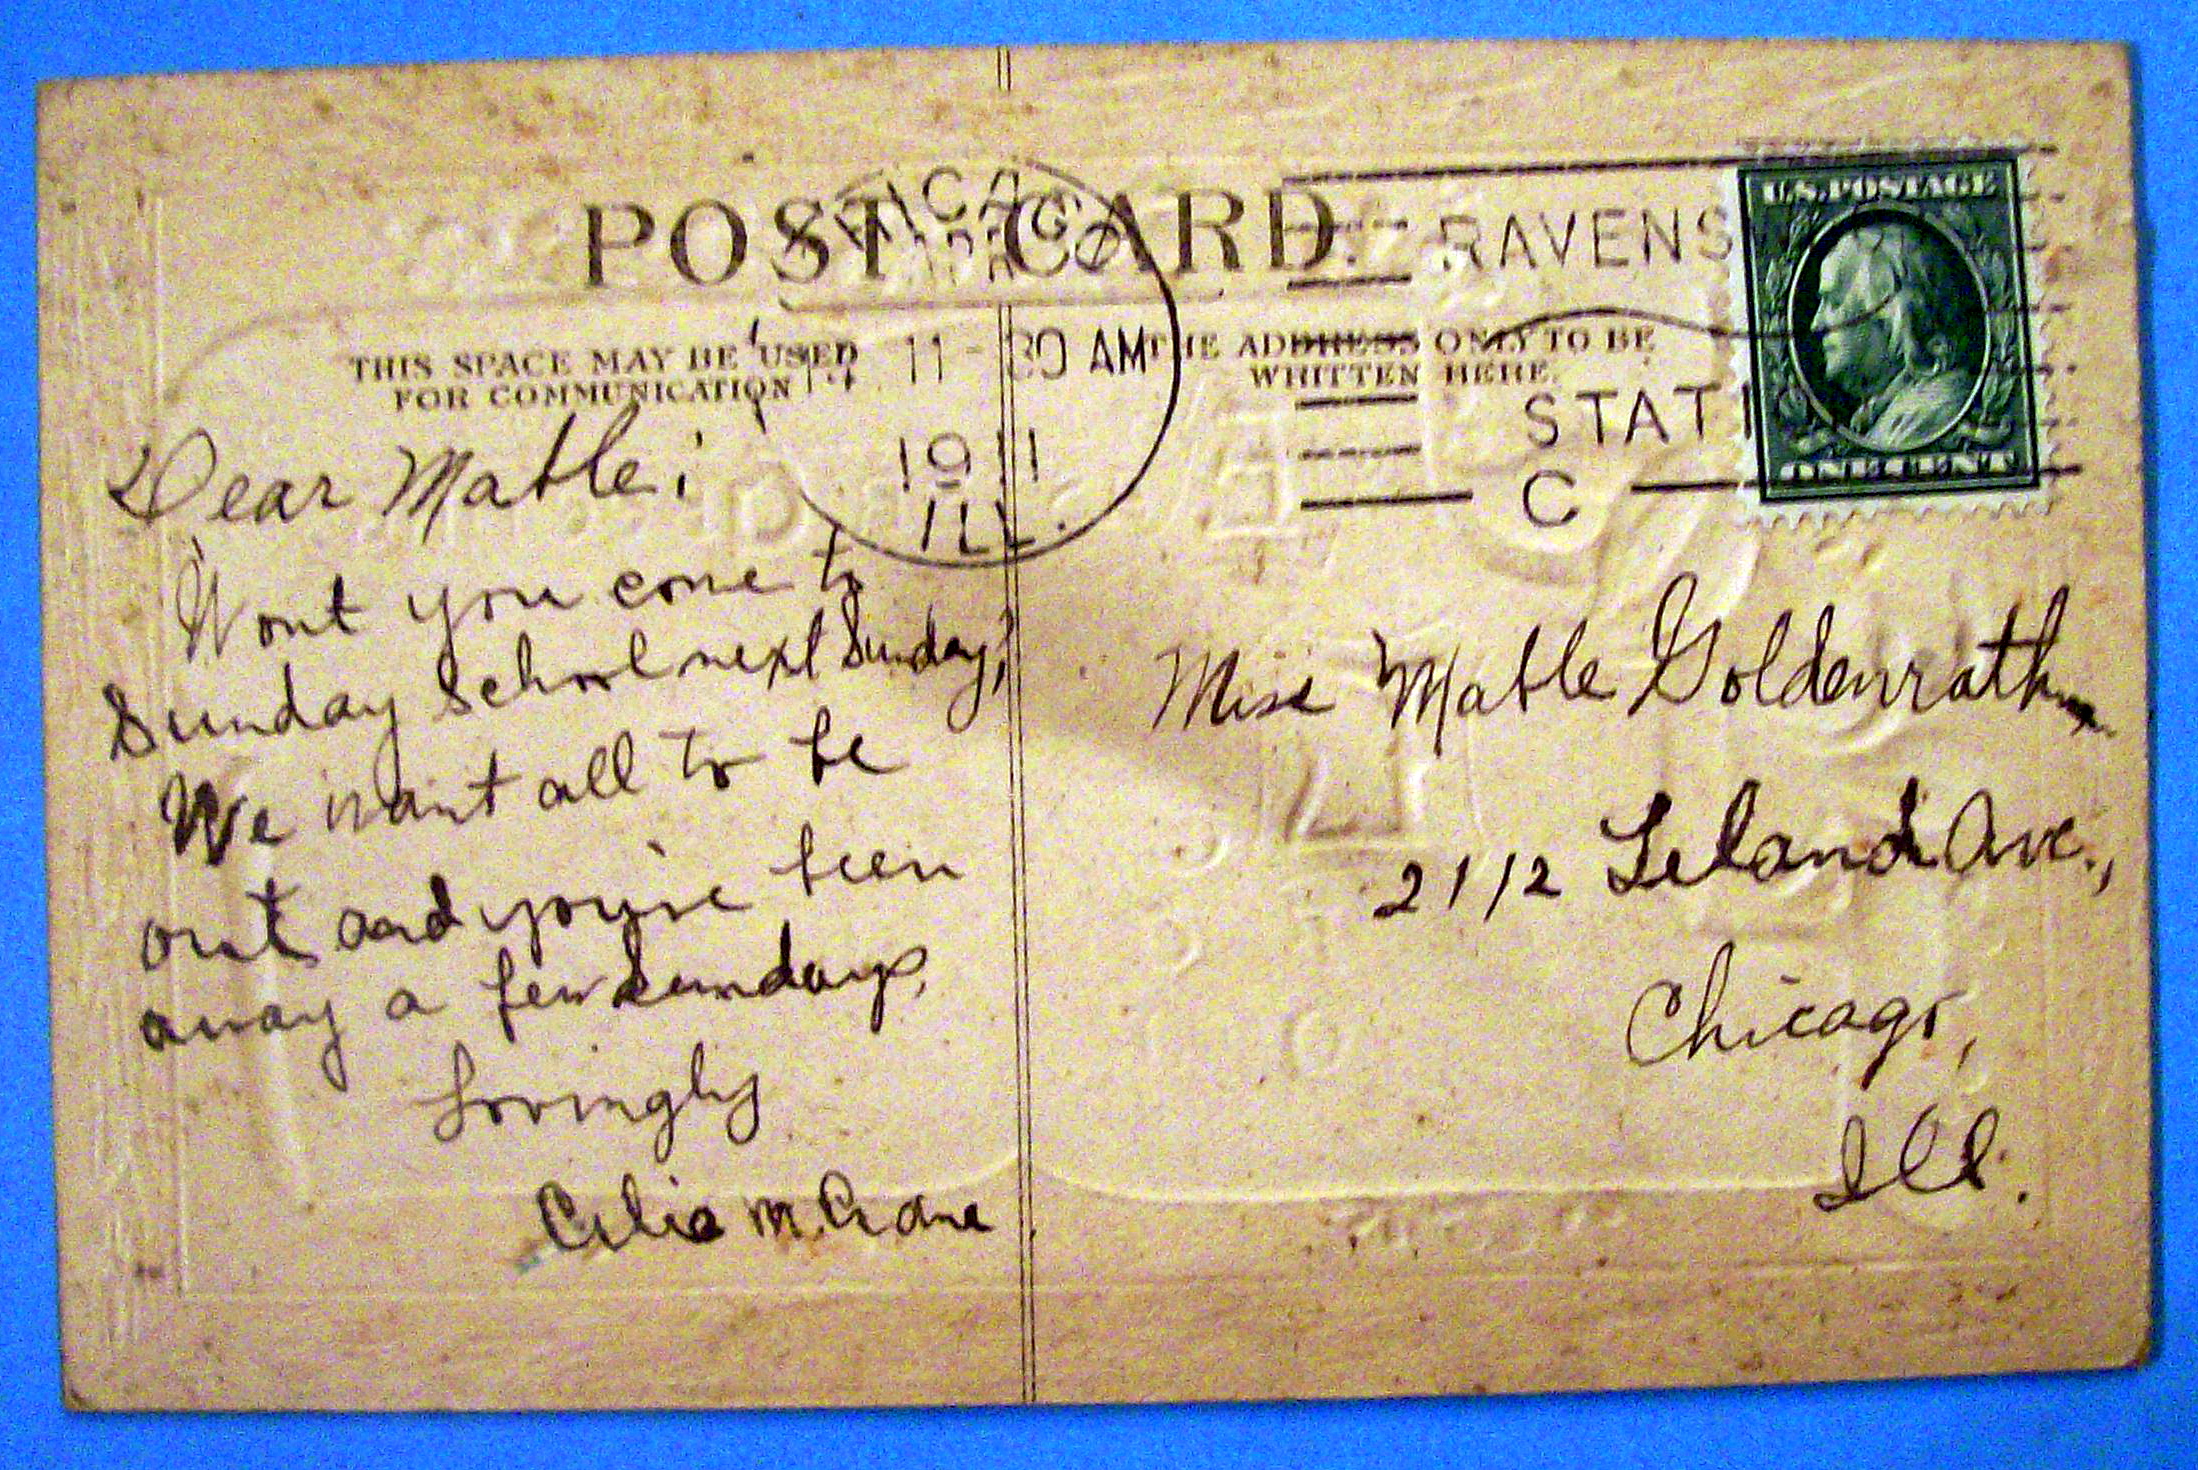 POST CARD
CHICAGO
APR
14 11-30 AM
1911
ILL.
RAVENS
STATI
C
U.S. POSTAGE
ONE CENT
THIS SPACE MAY BE USED
FOR COMMUNICATION
THE ADDRESS ONLY TO BE
WRITTEN HERE.
Dear Mable;
Wont you come to
Sunday School next Sunday?
We want all to be
out and you've been
away a few Sundays.
Lovingly
Celia M. Crane
Miss Mable Goldenrath
2112 Leland Ave.,
Chicago,
Ill.